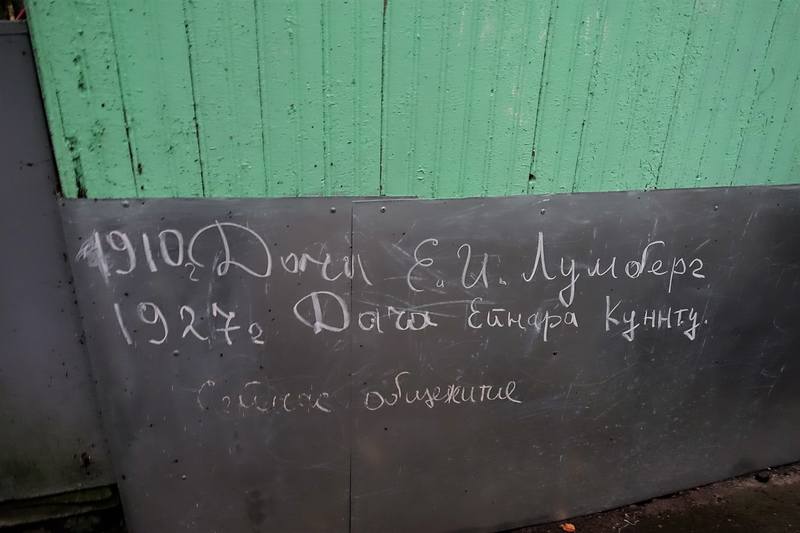 1910г Дача Е.И. Лумберг
1927г Дача Ейнара Куннту.
Сейчас общежитие